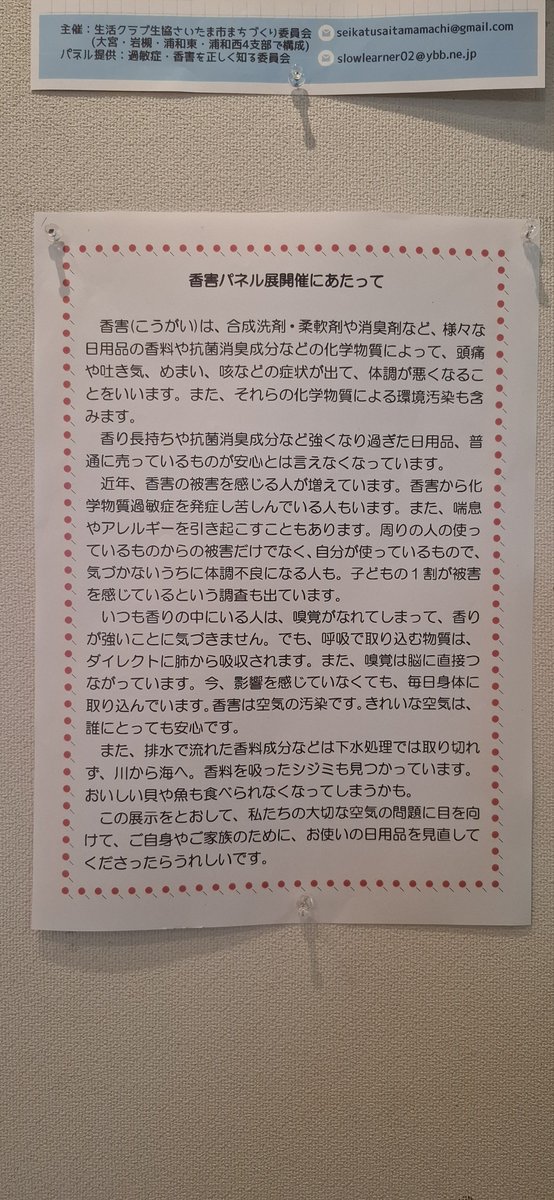 主催：生活クラブ生協さいたま市まちづくり委員会
(大宮・岩槻・浦和東・浦和西4支部で構成)
パネル提供：過敏症・香害を正しく知る委員会
seikatusaitamamachi@gmail.com
slowlearner02@ybb.ne.jp
香害パネル展開催にあたって
香害(こうがい)は、合成洗剤・柔軟剤や消臭剤など、様々な
日用品の香料や抗菌消臭成分などの化学物質によって、頭痛
や吐き気、めまい、咳などの症状が出て、体調が悪くなるこ
とをいいます。また、それらの化学物質による環境汚染も含
みます。
香り長持ちや抗菌消臭成分など強くなり過ぎた日用品、普
通に売っているものが安心とは言えなくなっています。
近年、香害の被害を感じる人が増えています。香害から化
学物質過敏症を発症し苦しんでいる人もいます。また、喘息
やアレルギーを引き起こすこともあります。周りの人の使っ
ているものからの被害だけでなく、自分が使っているもので、
気づかないうちに体調不良になる人も。子どもの１割が被害
を感じているという調査も出ています。
いつも香りの中にいる人は、嗅覚がなれてしまって、香り
が強いことに気づきません。でも、呼吸で取り込む物質は、
ダイレクトに肺から吸収されます。また、嗅覚は脳に直接つ
ながっています。今、影響を感じていなくても、毎日身体に
取り込んでいます。香害は空気の汚染です。きれいな空気は、
誰にとっても安心です。
また、排水で流れた香料成分などは下水処理では取り切れ
ず、川から海へ。香料を吸ったシジミも見つかっています。
おいしい貝や魚も食べられなくなってしまうかも。
この展示をとおして、私たちの大切な空気の問題に目を向
けて、ご自身やご家族のために、お使いの日用品を見直して
くださったらうれしいです。